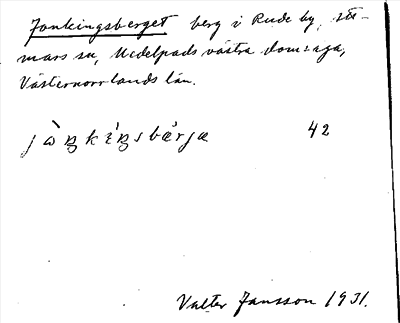 Jonkingsberget berg i Rude by, Stö-
mars sn, Medelpads västra doms:aga,
Västernorrlands län.
jὰŋkíŋsbærjæ 42
Valter Jansson 1931.